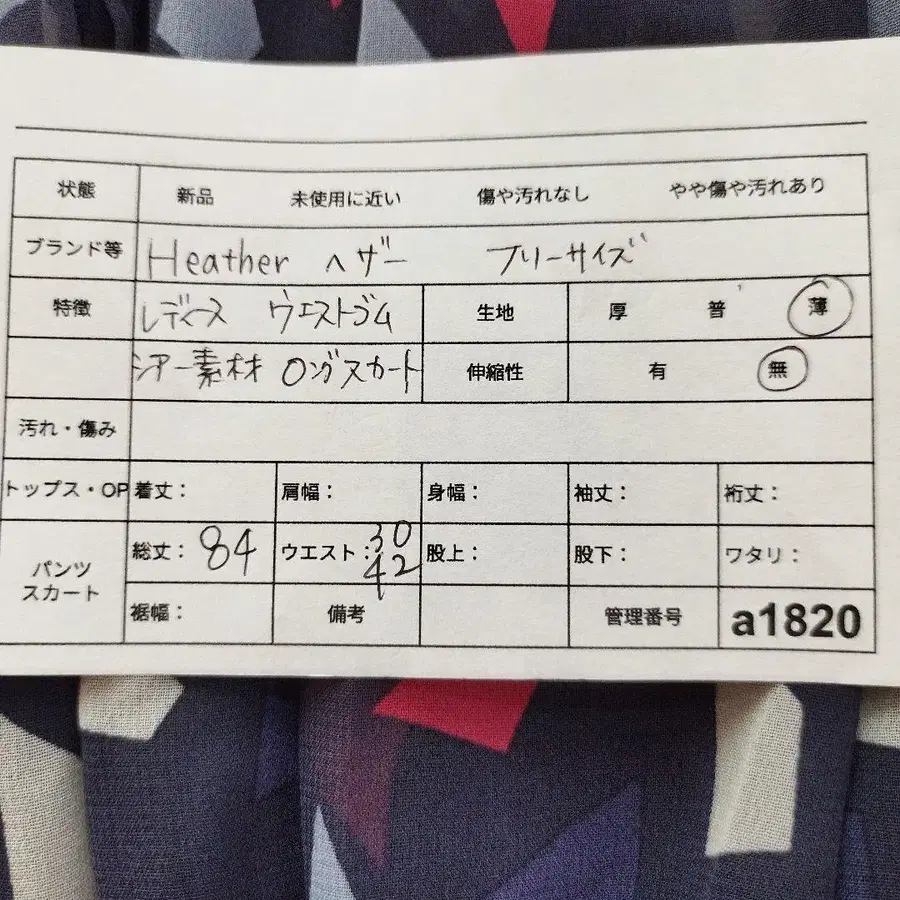 状態 新品 未使用に近い 傷や汚れなし やや傷や汚れあり
ブランド等 Heather ヘザー フリーサイズ
特徴 レディース ウエストゴム 生地 厚 普 薄
シアー素材 ロングスカート 伸縮性 有 無
汚れ・傷み
トップス・OP 着丈： 肩幅： 身幅： 袖丈： 裄丈：
パンツ スカート 総丈：84 ウエスト：30 42 股上： 股下： ワタリ：
裾幅： 備考 管理番号 a1820